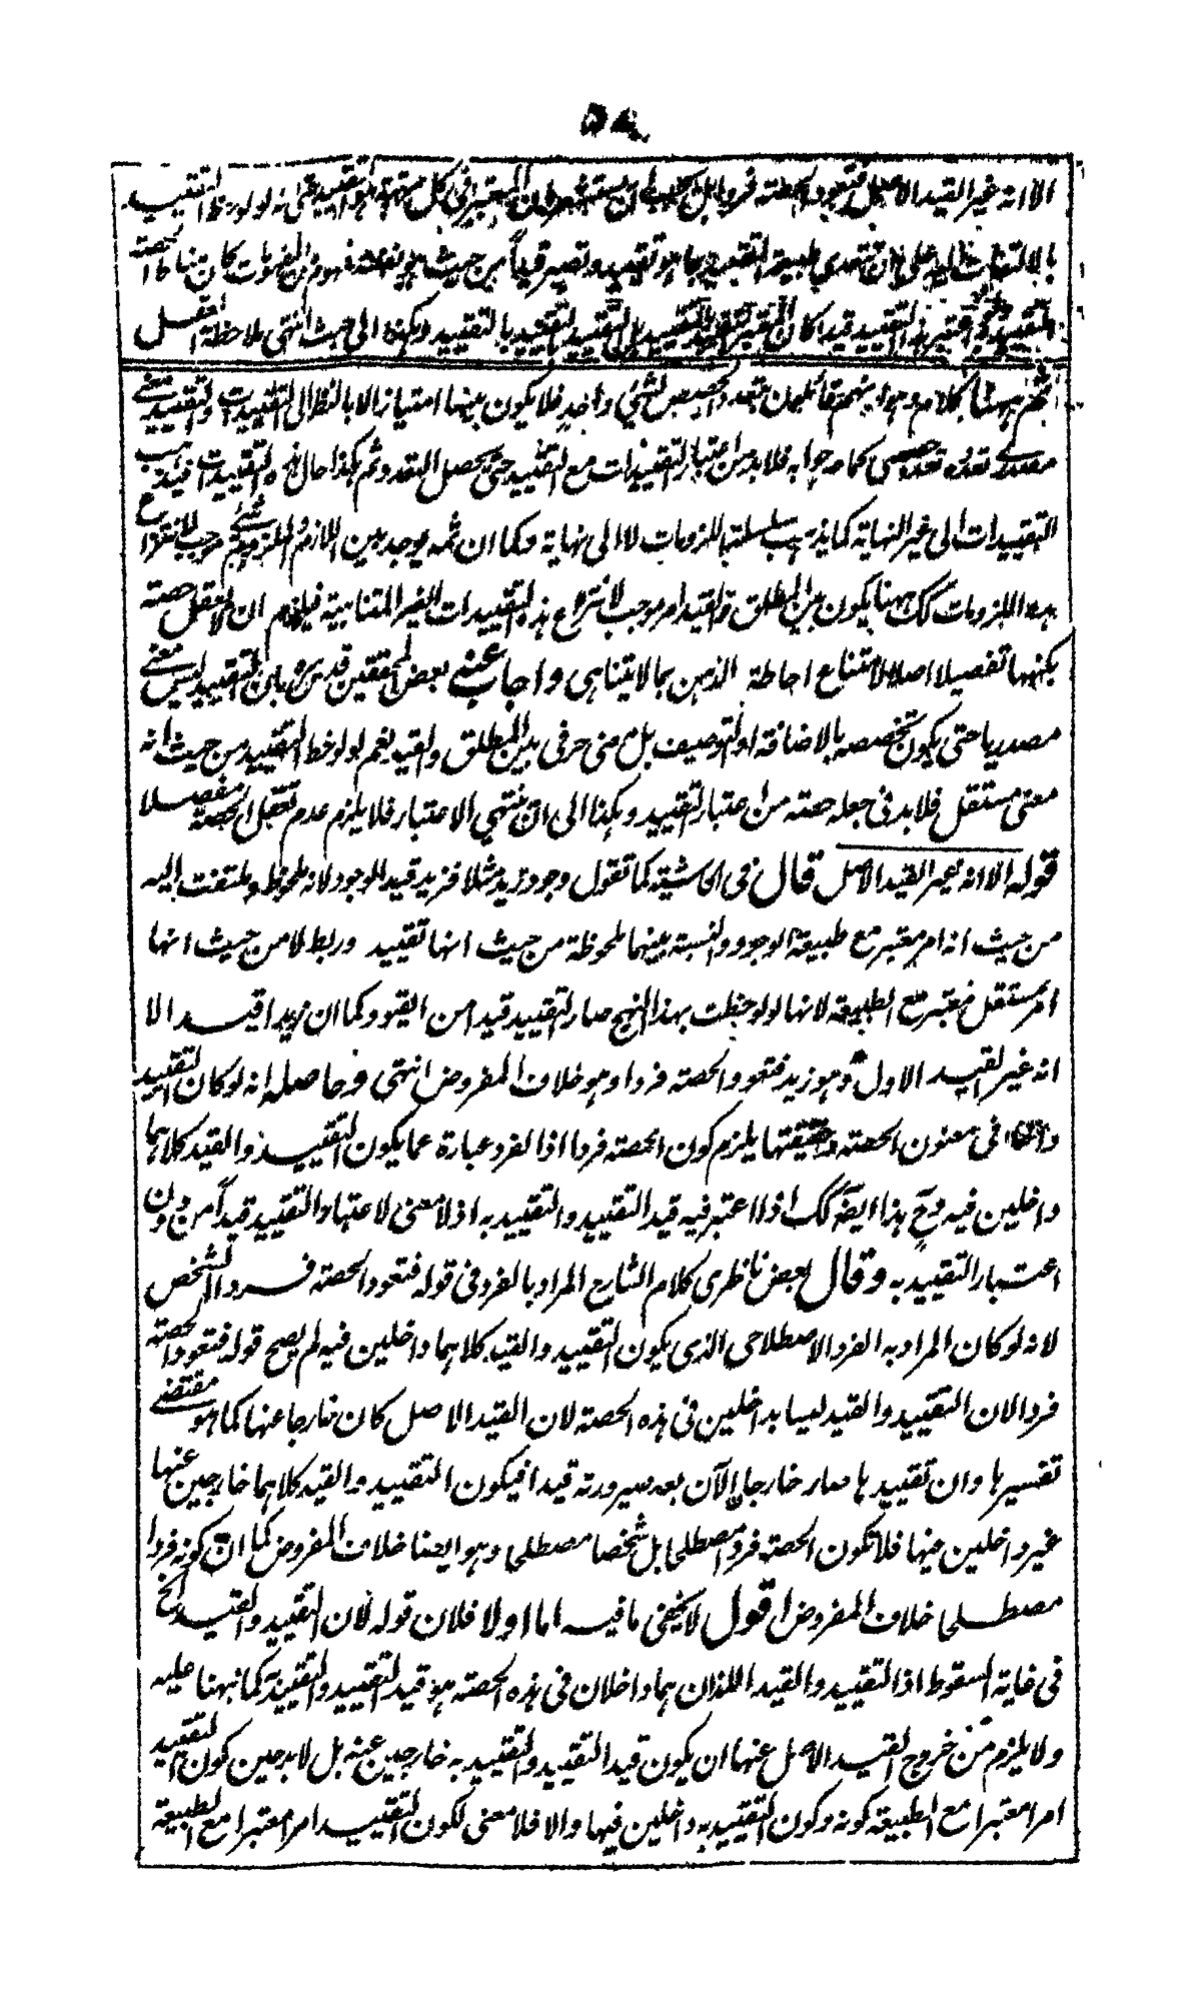 ۵۸
الا انه غير القيد الاصل فتعود الحصة فردا بل يجب ان المعتبر في كل مرتبة هو التقييد انه لو لوحظ التقييد
بالالتفات اليه طبيعة التقييد بما هو تقييد وتصير قيداً من حيث هو من المفهومات كان مناط الحصة
التقييد قيدا كان المعتبر التقييد بالتقييد وهكذا الى حيث انتهى ملاحظة العقل
كلام وهو انهم قائلون بتعدد الحصص لشئ واحد فلا يكون بينها امتياز الا بالنظر الى التقييدات والتقييد معنى
تعدده كما مر جوابه فلابد من اعتبار التقييدات مع التقييد حتى يحصل التعدد ثم هكذا حال هذه التقييدات فيذهب
التقييدات الى غير النهاية كما يذهب سلسلة اللزومات لا الى نهاية وكما ان ثمه يوجد بين اللازم والملزوم شئ موجب لانتزاع
هذه اللزومات كك ههنا يكون بين المطلق والقيد امر موجب لانتزاع هذه التقييدات الغير المتناهية فيلزم ان لا يعقل حصة
بكنهها تفصيلا اصلا لامتناع احاطة الذهن بما لا يتناهى واجاب عنه بعض المحققين قدس سره بان التقييد ليس معنى
مصدريا حتى يكون تخصصه بالاضافة او التوصيف بل معنى حرفى بين المطلق والقيد نعم لو لوحظ التقييد من حيث انه
معنى مستقل فلابد فى جعله حصة من اعتبار التقييد وهكذا الى ان ينتهى الاعتبار فلا يلزم عدم تعقل الحصة مفصلا
قوله الا انه غير القيد الاصل قال فى الحاشية كما تقول وجود زيد مثلا فزيد قيد للوجود لانه ملحوظ وملتفت اليه
من حيث انه امر معتبر مع طبيعة الوجود والنسبة بينهما ملحوظة من حيث انها تقييد وربط لا من حيث انها
امر مستقل معتبر مع الطبيعة لانها لو لوحظت بهذا النهج صار التقييد قيدا من القيود وكما ان زيدا قيد الا
انه غير القيد الاول وهو زيد فتعود الحصة فردا وهو خلاف المفروض انتهى وحاصله انه لو كان التقييد
داخلا فى معنون الحصة وحقيقتها يلزم كون الحصة فردا اذ الفرد عبارة عما يكون التقييد والقيد كلاهما
داخلين فيه وح هذا ايضا كك اذ اعتبر فيه قيد التقييد والتقييد به اذ لا معنى لاعتبار التقييد قيداً من دون
اعتبار التقييد به وقال بعض ناظرى كلام الشارح المراد بالفرد فى قوله فتعود الحصة فردا الشخص
لانه لو كان المراد به الفرد الاصطلاحى الذى يكون التقييد والقيد كلاهما داخلين فيه لم يصح قوله فتعود الحصة
فردا لان التقييد والقيد ليسا بداخلين فى هذه الحصة لان القيد الاصل كان خارجا عنها كما هو مقتضى
تفسيرها وان تقييدها صار خارجا الآن بعد صيرورته قيدا فيكون التقييد والقيد كلاهما خارجين عنها
غير داخلين فيها فلا تكون الحصة فردا مصطلحا بل شخصا مصطلحا وهو ايضا خلاف المفروض كما ان كونه فردا
مصطلحا خلاف المفروض اقول لا يخفى ما فيه اما اولا فلان قوله لان التقييد والقيد الخ
فى غاية السقوط اذ التقييد والقيد اللذان هما داخلان فى هذه الحصة هو قيد التقييد والتقييد به كما نبهنا عليه
ولا يلزم من خروج القيد الاصل عنها ان يكون قيد التقييد والتقييد به خارجين عنه بل لابد حين كون التقييد
امرا معتبرا مع الطبيعة كونه وكون التقييد به داخلين فيها والا فلا معنى لكون التقييد امرا معتبرا مع الطبيعة